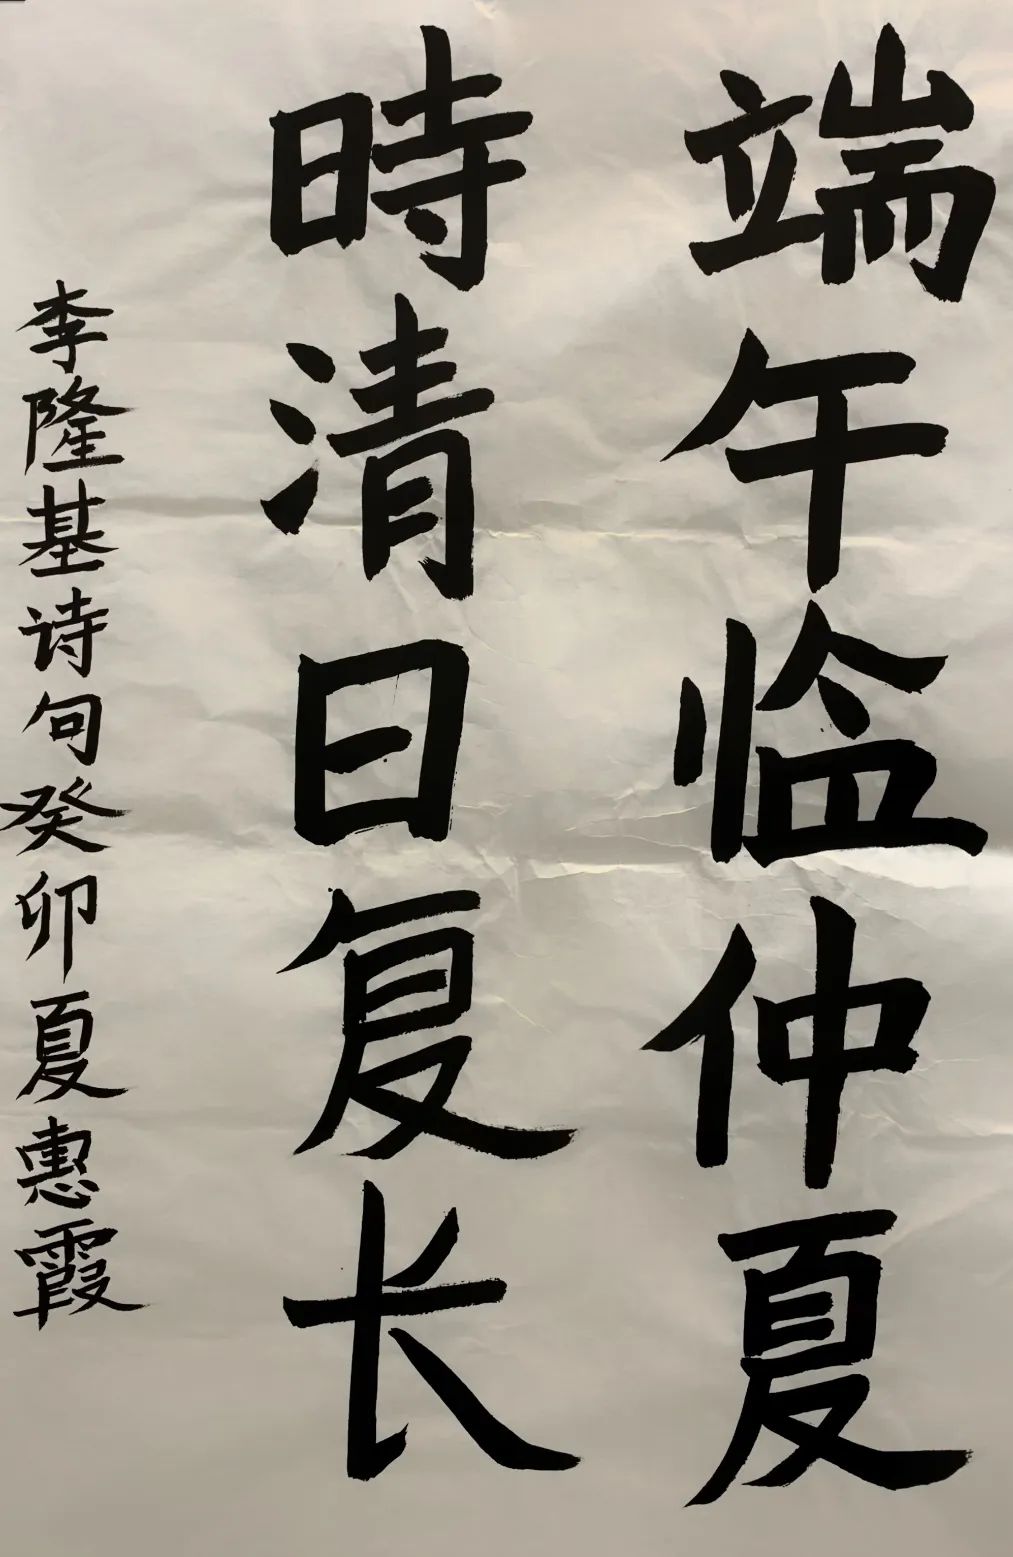 端午临仲夏
時清日复长
李隆基诗句癸卯夏惠霞